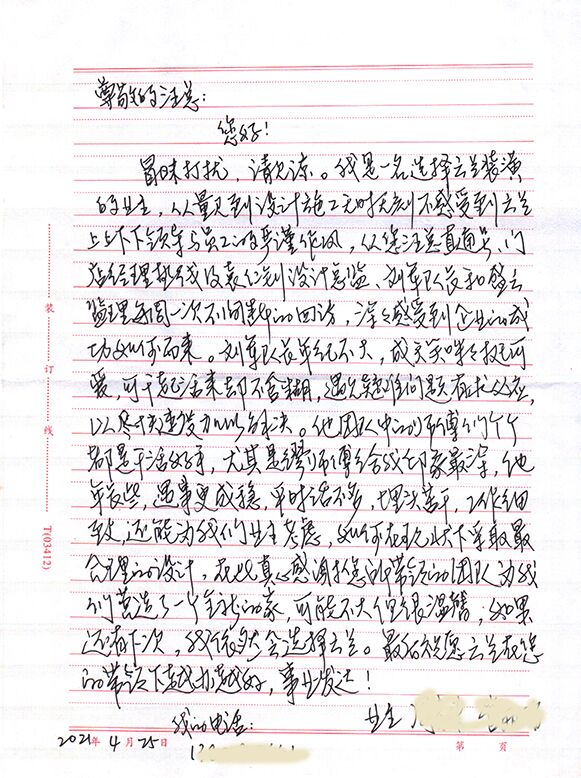 尊敬的汪总：
您好！
冒昧打扰，请见谅。我是一名选择云兰装潢
的业主，从量见到设计施工无时无刻不感受到云兰
上上下下领导与员工的严谨作风，从您汪总直通号、门
店经理到设计总监、刘军队长和
监理每周一次不间断的回访，深深感受到企业的成
功如何而来。刘军队长年纪不大，成天笑咪咪挺可
爱，可干起活来却不含糊，遇疑难问题有求必应，
以尽快速度加以解决。他团队中的师傅们个个
都是干活好手，尤其是缪师傅给我印象最深，他
年长些，遇事更成稳，平时话不多，埋头苦干，工作细
致，还能为我们业主考虑，如何在现状下采取最
合理的设计，在此真心感谢您的带领的团队为我
们营造了一个全新的家，可能不大但很温馨，如果
还有下次，我依然会选择云兰。最后祝愿云兰在您
的带领下越办越好，事业发达！
业主
我的电话：
2021年4月25日
第 页
装
订
线
T(03412)